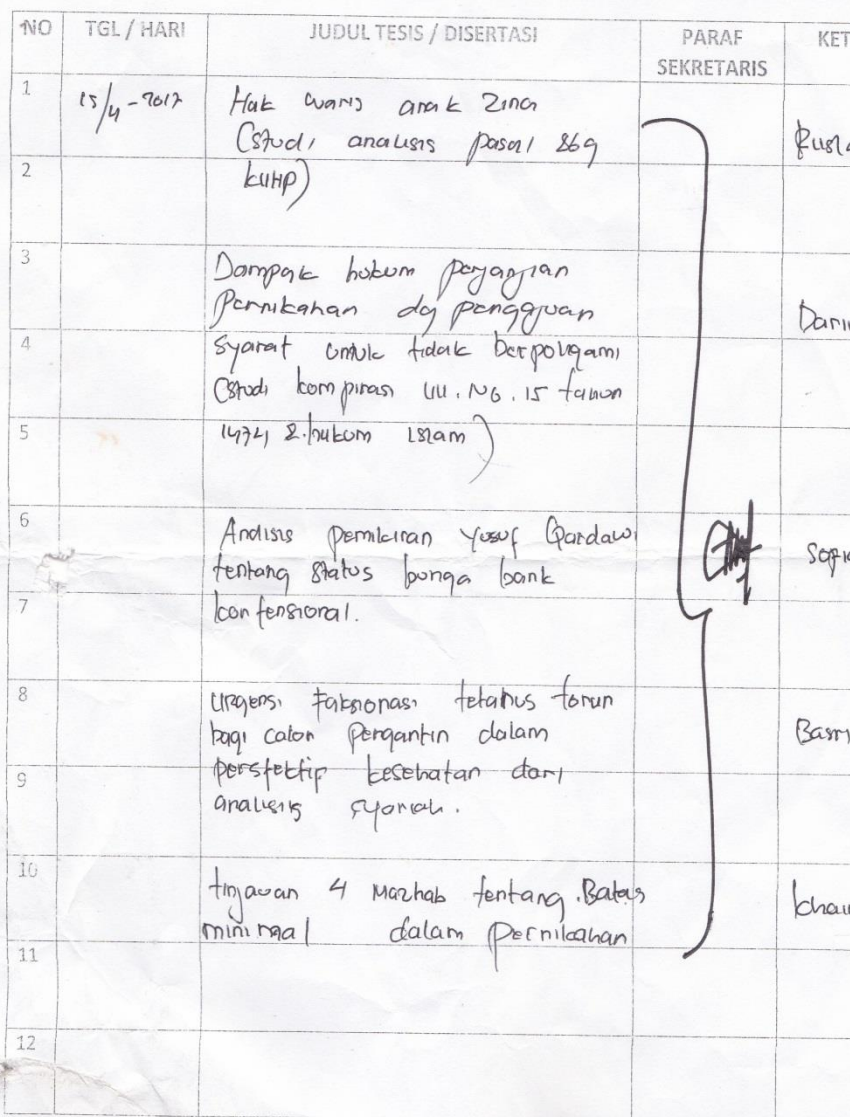 NO TGL / HARI JUDUL TESIS / DISERTASI PARAF SEKRETARIS KET
1 15/4-2017 Hak waris anak Zina
(studi analisis pasal 869
2 KUHP)
3 Dampak hukum perjanjian
Pernikahan dg pengajuan
4 syarat untuk tidak berpoligami
(studi kompirasi UU. NO. 15 tahun
5 1974, & hukum Islam)
6 Analisis pemikiran Yusuf Qardawi
tentang status bunga bank
7 konfensional.
8 Urgensi Faksionasi tetanus
bagi calon pengantin dalam
9 perspektip kesehatan dari
analisis syariah.
10 tinjauan 4 Mazhab tentang Batas
minimal dalam pernikahan
11
12
Basri